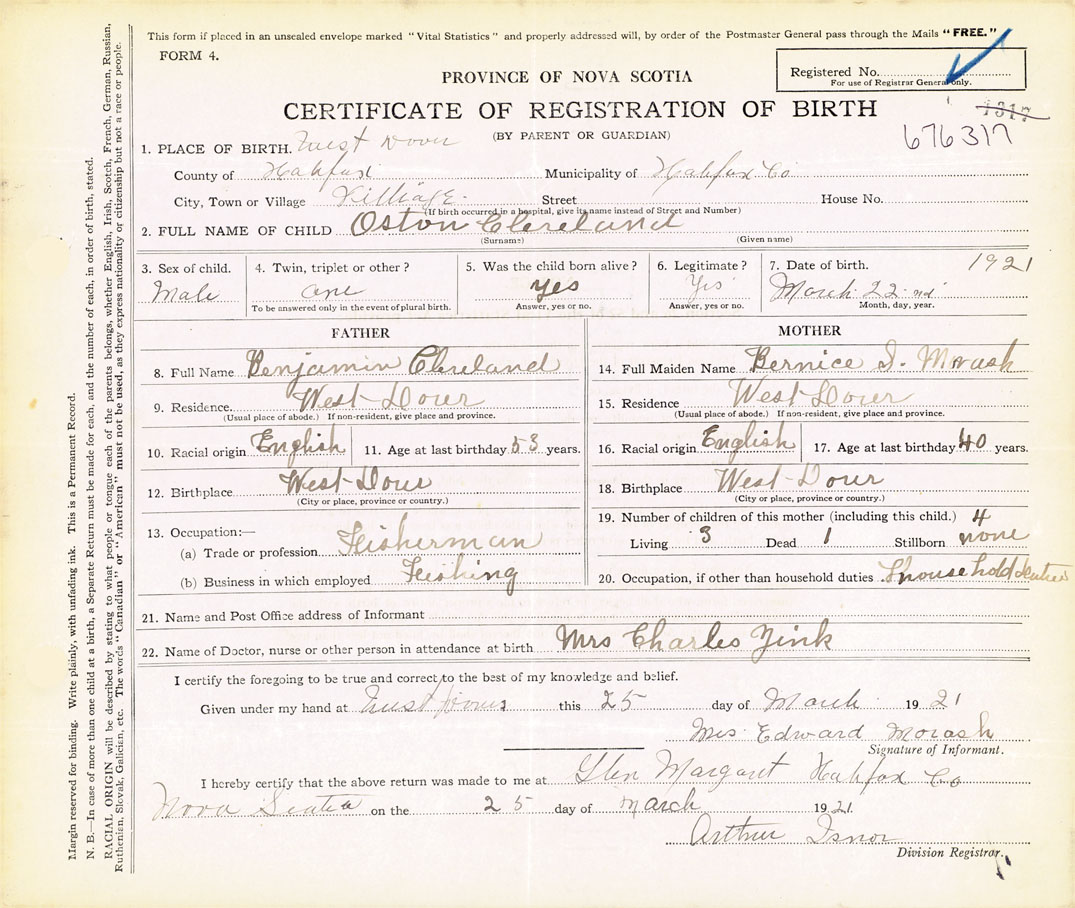 This form if placed in an unsealed envelope marked "Vital Statistics" and properly addressed will, by order of the Postmaster General pass through the Mails "FREE."
FORM 4.
Registered No.
For use of Registrar General only.
PROVINCE OF NOVA SCOTIA
CERTIFICATE OF REGISTRATION OF BIRTH
1317
676317
(BY PARENT OR GUARDIAN)
1. PLACE OF BIRTH.
County of Halifax Municipality of Halifax Co
City, Town or Village Villiage Street House No.
(If birth occurred in a hospital, give its name instead of Street and Number)
2. FULL NAME OF CHILD Oston Cleveland
(Surname) (Given name)
3. Sex of child. 4. Twin, triplet or other? 5. Was the child born alive? 6. Legitimate? 7. Date of birth. 1921
Male one yes Yes March 22 nd
To be answered only in the event of plural birth. Answer, yes or no. Answer, yes or no. Month, day, year.
FATHER
8. Full Name Benjamin Cleveland
9. Residence. West Dover
(Usual place of abode.) If non-resident, give place and province.
10. Racial origin English 11. Age at last birthday 53 years.
12. Birthplace West Dover
(City or place, province or country.)
13. Occupation:—
(a) Trade or profession Feisherman
(b) Business in which employed Feishing
MOTHER
14. Full Maiden Name Bernice I. Morash
15. Residence West Dover
(Usual place of abode.) If non-resident, give place and province.
16. Racial origin English 17. Age at last birthday 40 years.
18. Birthplace West Dover
(City or place, province or country.)
19. Number of children of this mother (including this child.) 4
Living 3 Dead 1 Stillborn none
20. Occupation, if other than household duties household duties
21. Name and Post Office address of Informant
22. Name of Doctor, nurse or other person in attendance at birth Mrs Charles Zink
I certify the foregoing to be true and correct to the best of my knowledge and belief.
Given under my hand at this 25 day of March 1921
Mrs Edward Morash
Signature of Informant.
I hereby certify that the above return was made to me at Glen Margaret Halifax Co
Nova Scotia on the 25 day of March 1921
Arthur Isnor
Division Registrar.
Margin reserved for binding. Write plainly, with unfading ink. This is a Permanent Record.
N. B.—In case of more than one child at a birth, a Separate Return must be made for each, and the number of each, in order of birth, stated.
RACIAL ORIGIN will be described by stating to what people or tongue each of the parents belongs, whether English, Irish, Scotch, French, German, Russian,
Ruthenian, Slovak, Galician, etc. The words "Canadian" or "American" must not be used, as they express nationality or citizenship but not a race or people.